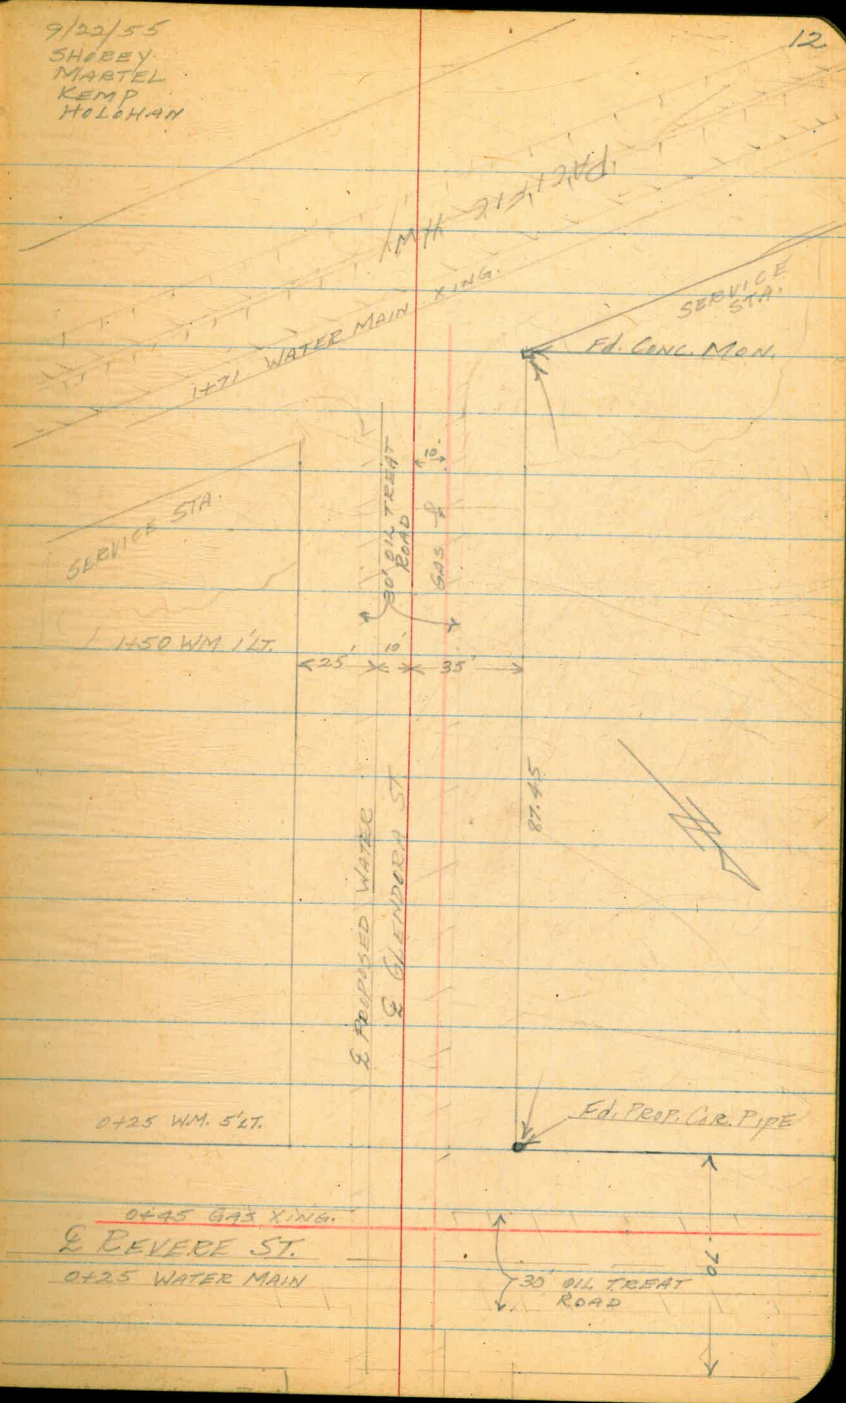 9/22/55
SHOREY
MARTEL
KEMP
HOLOHAN
12
PACIFIC HWY
1+71 WATER MAIN XING.
SERVICE
STA.
Fd. CONC. MON.
10'
30' OIL TREAT
ROAD
GAS ℄
SERVICE STA.
1+50 WM 1' LT.
25' 10' 35'
87.45
℄ PROPOSED WATER
℄ GLENDORA ST.
0+25 W.M. 5' LT.
Fd. PROP. COR. PIPE
0+45 GAS XING.
℄ REVERE ST.
0+25 WATER MAIN
30' OIL TREAT
ROAD
70